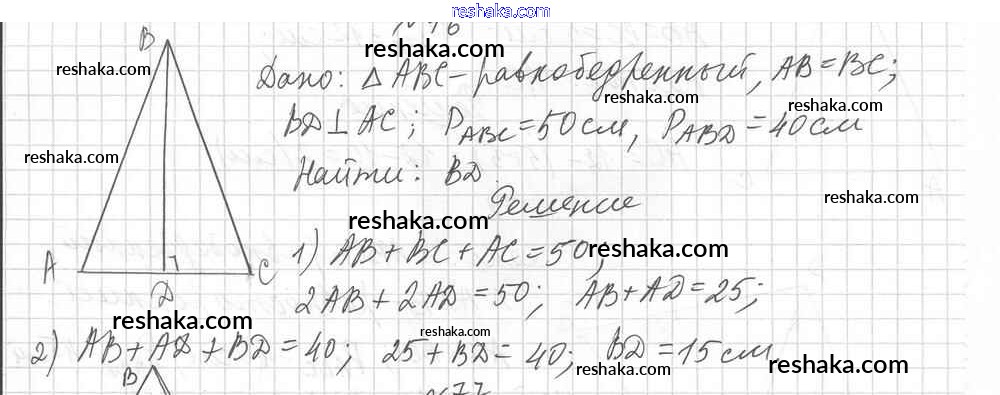 reshaka.com
Дано: △ABC – равнобедренный, AB = BC;
BD ⊥ AC; P_ABC = 50 см, P_ABD = 40 см
Найти: BD.
Решение
1) AB + BC + AC = 50;
2AB + 2AD = 50; AB + AD = 25;
2) AB + AD + BD = 40; 25 + BD = 40; BD = 15 см
B
A
D
C
B
№77
reshaka.com
reshaka.com
reshaka.com
reshaka.com
reshaka.com
reshaka.com
reshaka.com
reshaka.com
reshaka.com
reshaka.com
reshaka.com